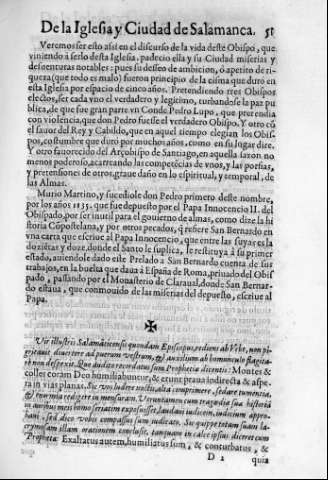 De la Iglesia y Ciudad de Salamanca. 51
Veremos ser esto assi en el discurso de la vida deste Obispo, que
viniendo à serlo desta Iglesia, padecio ella y su Ciudad miserias y
desuenturas notables: pues su desseo de ambicion, ò apetito de ri-
queza (que todo es malo) fueron principio de la cisma que duro en
esta Iglesia por espacio de cinco años. Pretendiendo tres Obispos
electos, ser cada vno el verdadero y legitimo, turbandose la paz pu
blica, de que fue gran parte vn Conde Pedro Lupo, que pretendia
con violécia, que don Pedro fuesse el verdadero Obispo. Y otro cõ
el fauor del Rey y Cabildo, que en aquel tiempo elegian los Obis-
pos, costumbre que duro por muchos años, como en su lugar dire.
Y otro fauorecido del Arçobispo de Santiago, en aquella sazon no
menos poderoso, acarreando las competécias de vnos, y las porfias,
y pretensiones de otros, graue daño en lo espiritual, y temporal, de
las Almas.
Murio Martino, y sucediole don Pedro primero deste nombre,
por los años 1135. que fue depuesto por el Papa Innocencio II. del
Obispado, por ser inutil para el gouierno de almas, como dize la hi
storia Cõpostelana, y por otros pecados, q̃ refiere San Bernardo en
vna carta que escriue al Papa Innocencio, que entre las suyas es la
dozientas y doze, donde el Santo le suplica, le restituya à su primer
estado, auiendole dado este Prelado a San Bernardo cuenta de sus
trabajos, en la buelta que daua à España de Roma, priuado del Obis
pado, passando por el Monasterio de Claraual, donde San Bernar-
do estaua, que conmouido de las miserias del depuesto, escriue al
Papa.
Vir illustris Salamāticensis quondam Episcopus, rediens ab Vrbe, non pi-
gritauit diuertere ad puerum vestrum, & auxilium ab homunculo flagita-
re non despexit. Quo audito recordatus sum Prophetia dicentis: Montes &
colles coram Deo humiliabuntur, & erunt praua in directa & aspe-
ra in vias planas. Sic vos ludere nostis, alta comprimere, sedare tumentia,
& enormia redigere in mensuram. Veruntamen cum tragœdia sua historiā
in auribus meis homo seriatim exposuisset, laudaui iudicem, iudicium appro-
baui, sed dico vobis compassus sum iudicato. Sic quippe totum suam la-
crymosam illam orationem conclusit, tamquam in calce ipsius diceret cum
Propheta: Exaltatus autem, humiliatus sum, & conturbatus, &
D 2 quia